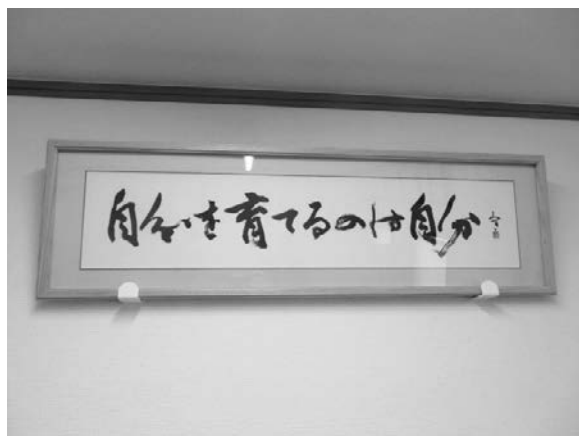 自分を育てるのは自分